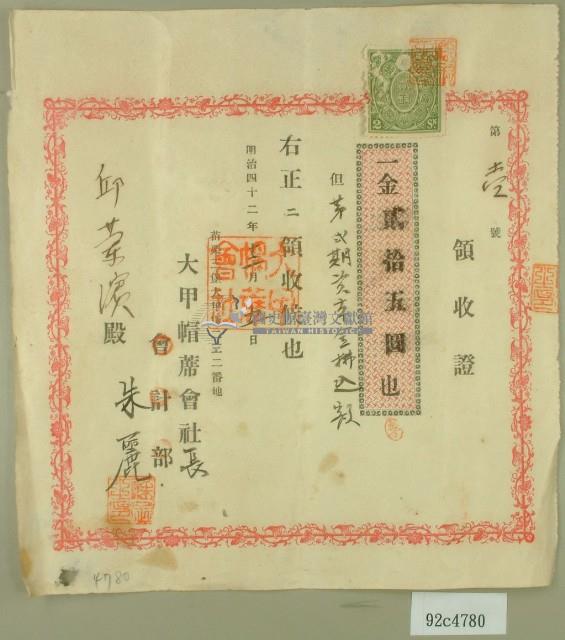 第壹號
領收證
一金貳拾五圓也
但第弐期資本金拂込額
右正ニ領收候也
明治四十二年
月
日
大甲帽蓆會社長
會計部
朱麗
邱
殿
2 Sn.
TAIWAN HISTORICA
4780
92c4780